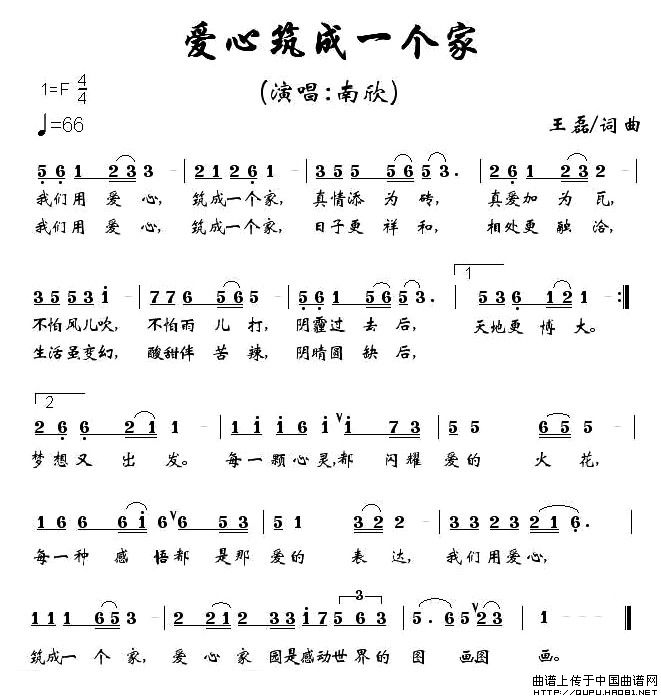 爱心筑成一个家
(演唱:南欣)
1=F 4/4
♩=66
王磊/词曲
5 6 1 2 3 3 - | 2 1 2 6 1 - | 3 5 5 5 6 5 3 . | 2 6 1 2 3 2 - |
我们用 爱 心, 筑成一个家, 真情添 为 砖, 真爱加 为 瓦,
我们用 爱 心, 筑成一个家, 日子更 祥 和, 相处更 融 洽,
3 5 5 3 i - | 7 7 6 5 6 5 - | 5 6 1 5 6 5 3 . | 1 5 3 6 1 2 1 - :‖
不怕风儿吹, 不怕雨 儿 打, 阴霾过 去 后, 天地更 博 大。
生活虽变幻, 酸甜伴 苦 辣, 阴晴圆 缺 后,
2
2 6 6 2 1 1 - | 1 i i 6 i v i 7 3 | 5 5 6 5 5 - |
梦想又 出 发。 每一颗心灵,都 闪耀 爱的 火 花,
1 6 6 6 i 6 v 6 5 3 | 5 1 3 2 2 - | 3 3 2 3 2 1 6 . |
每一种 感 悟都 是那 爱的 表 达, 我们用爱心,
1 1 1 6 5 3 - | 2 2 1 2 2 3 3 1 1 5 6 3 3 | 1 . 5 6 5 v 2 3 | 1 - - - ‖
筑成一 个 家, 爱心 家 园是感动世界的 图 画图 画。
曲谱上传于中国曲谱网
HTTP://WWW.QUPU.HAO81.NET